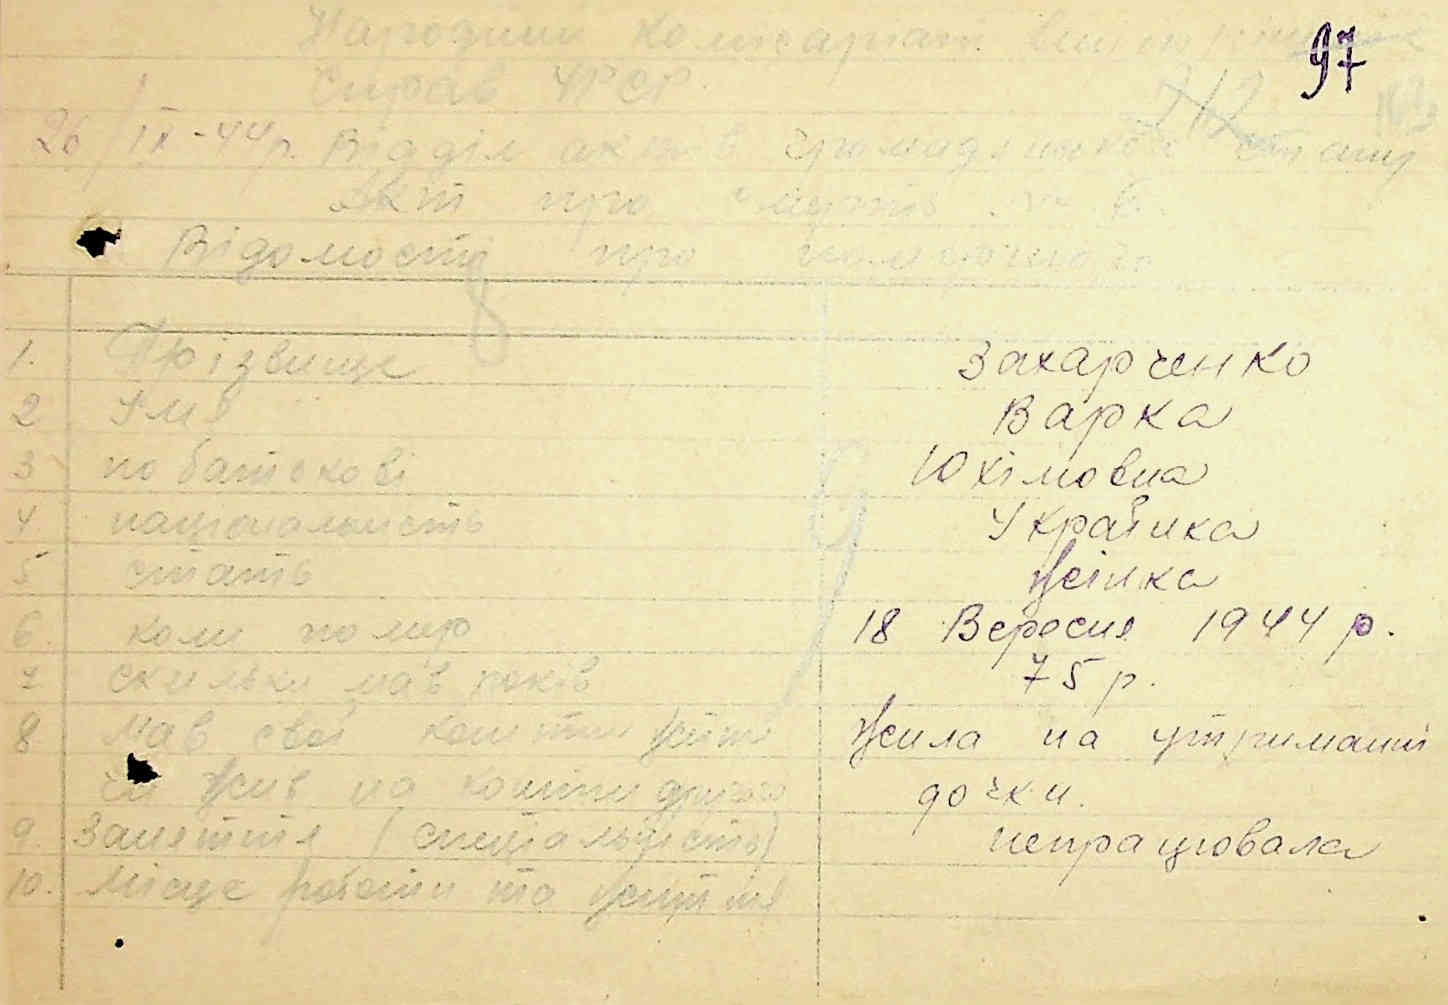 97
Народний Комісаріат внутрішніх
Справ УРСР.
712
26/IX-44р. Відділ актів громадянського стану
Акт про смерть № 6.
Відомості про померлого
1. Прізвище Захарченко
2 Імя Варка
3 по батькові Юхімовна
4 національність Українка
5 стать Жінка
6. коли помер 18 Вересня 1944 р.
7 скильки мав років 75 р.
8 мав свої кошти життя Жила на утриманні
чи жив на кошти других дочки.
9. Заняття (спеціальність) непрацювала
10. місце работи та життя